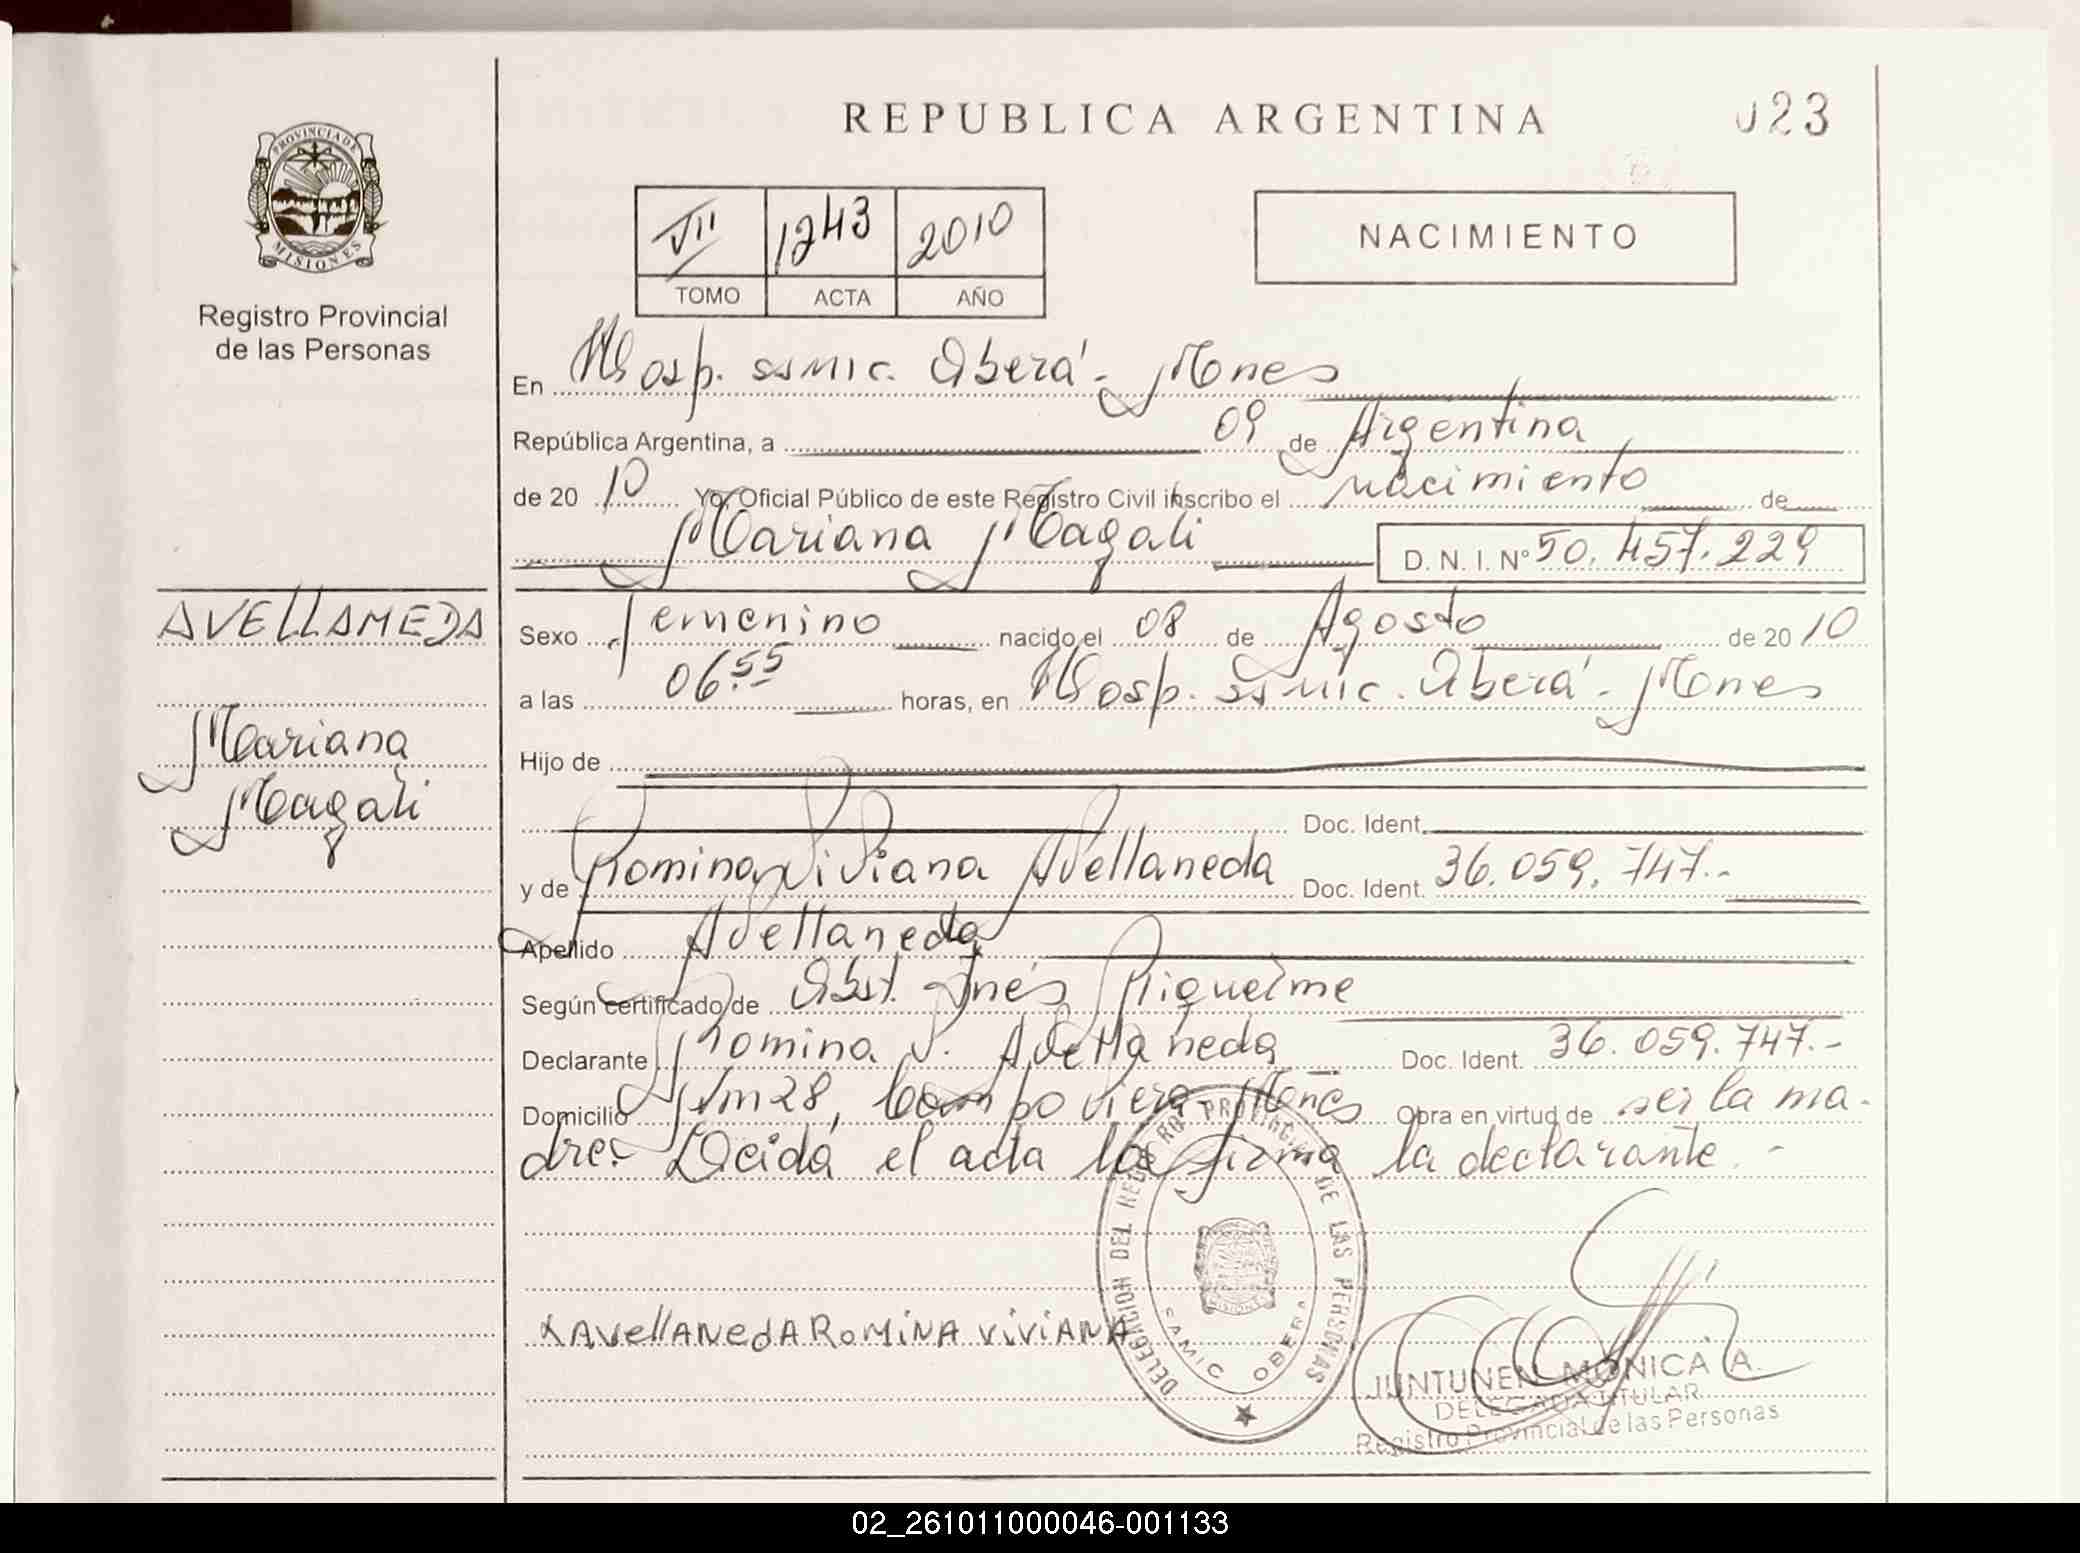 REPUBLICA ARGENTINA
023
PROVINCIA DE
MISIONES
Registro Provincial
de las Personas
VII 1243 2010
TOMO ACTA AÑO
NACIMIENTO
En Hosp. SAMIC. Oberá - Mnes
República Argentina, a 09 de Argentina
de 20 10 Yo, Oficial Público de este Registro Civil inscribo el nacimiento de
Mariana Magali D. N. I. N° 50.457.229
AVELLAMEDA
Mariana
Magali
Sexo Femenino nacido el 08 de Agosto de 20 10
a las 06.55 horas, en Hosp. SAMIC. Oberá - Mnes
Hijo de
Doc. Ident.
y de Romina Viviana Avellaneda Doc. Ident. 36.059.747.-
Apellido Avellaneda
Según certificado de Obst. Inés Riquelme
Declarante Romina V. Avellaneda Doc. Ident. 36.059.747.-
Domicilio Km 28, Campo Viera Mnes Obra en virtud de ser la ma-
dre. Leida el acta la firma la declarante.-
x AVellANedA RoMiNA ViViANA
DELEGACION DEL REGISTRO PROVINCIAL DE LAS PERSONAS
SAMIC OBERA
MISIONES
JUNTUNEN MONICA A.
DELEGADA TITULAR
Registro Provincial de las Personas
02_261011000046-001133